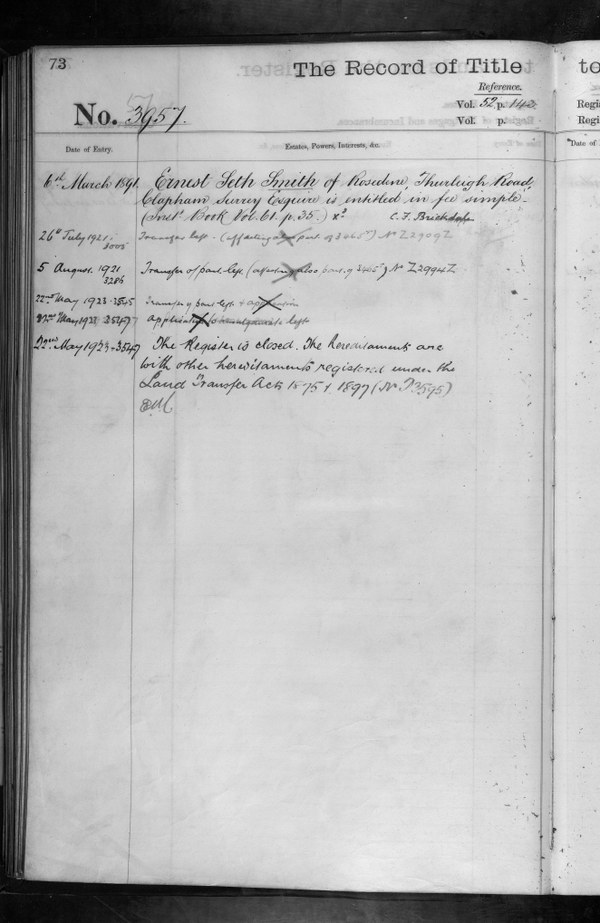 73
The Record of Title
to
Reference.
No. 3957.
Vol. 52 p. 142
Vol. p.
Regi
Regi
Date of Entry.
Estates, Powers, Interests, &c.
Date of
6th March 1891.
Ernest Seth Smith of Rosedene, Thurleigh Road,
Clapham Surrey Esquire is entitled in fee simple.
(Inst. Book Vol. 61. p. 35.)
26th July 1921.
3005
Transfer left. (affecting also part of 3465) No Z2909Z
5 August. 1921
3286
Transfer of part left (affecting also part of 3465) No Z2994Z
22nd May 1923
Transfer of part left & application
22nd May 1923
Application to amalgamate left
22nd May 1923 3547
The Register is closed. The hereditaments are
with other hereditaments registered under the
Land Transfer Acts 1875 & 1897 (No P3595)